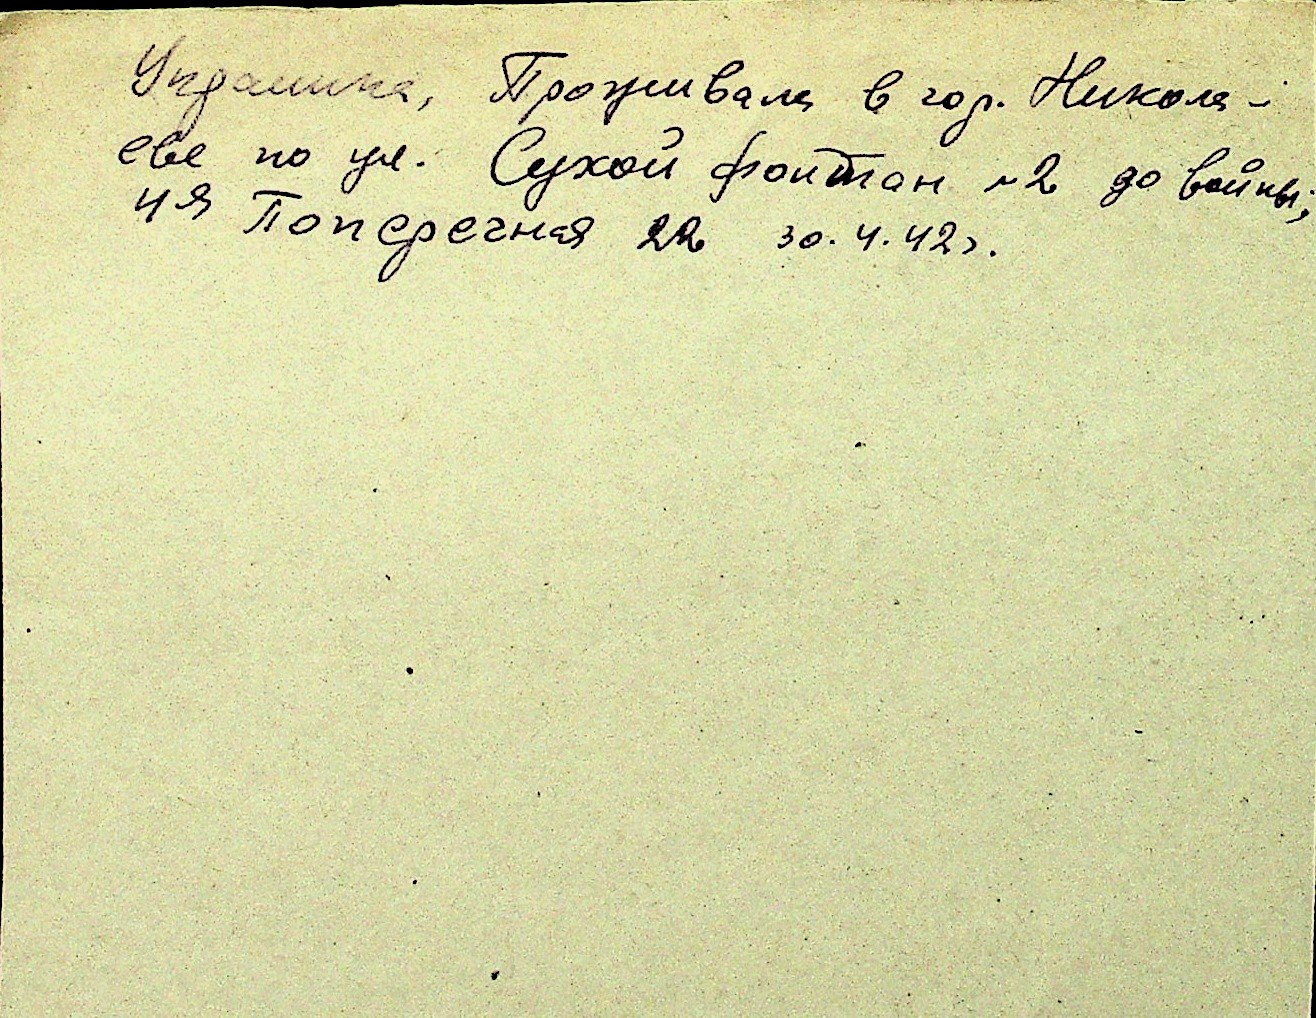 Украинка, Проживала в гор. Никола-
еве по ул. Сухой фонтан №2 до войны;
4я Поперечная 22 30.4.42г.